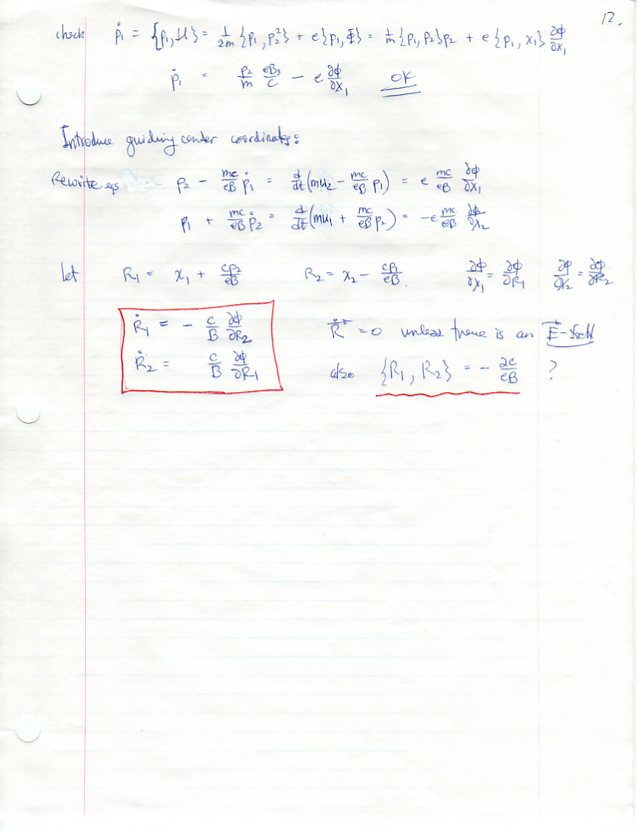 12.
check ṗ₁ = {p₁, H} = 1/2m {p₁, p₂²} + e{p₁, Φ} = 1/m {p₁, p₂}p₂ + e {p₁, x₁} ∂ϕ/∂x₁
ṗ₁ = p₂/m eB₃/c − e ∂ϕ/∂x₁ OK
Introduce guiding center coordinates:
Rewrite eqs p₂ − mc/eB ṗ₁ = d/dt (mu₂ − mc/eB p₁) = e mc/eB ∂ϕ/∂x₁
p₁ + mc/eB ṗ₂ = d/dt (mu₁ + mc/eB p₂) = −e mc/eB ∂ϕ/∂x₂
let R₁ = x₁ + cp₂/eB R₂ = x₂ − cp₁/eB. ∂ϕ/∂x₁ = ∂ϕ/∂R₁ ∂ϕ/∂x₂ = ∂ϕ/∂R₂
Ṙ₁ = − c/B ∂ϕ/∂R₂ Ṙ = 0 unless there is an E-field
Ṙ₂ = c/B ∂ϕ/∂R₁ also {R₁, R₂} = − 2c/eB ?